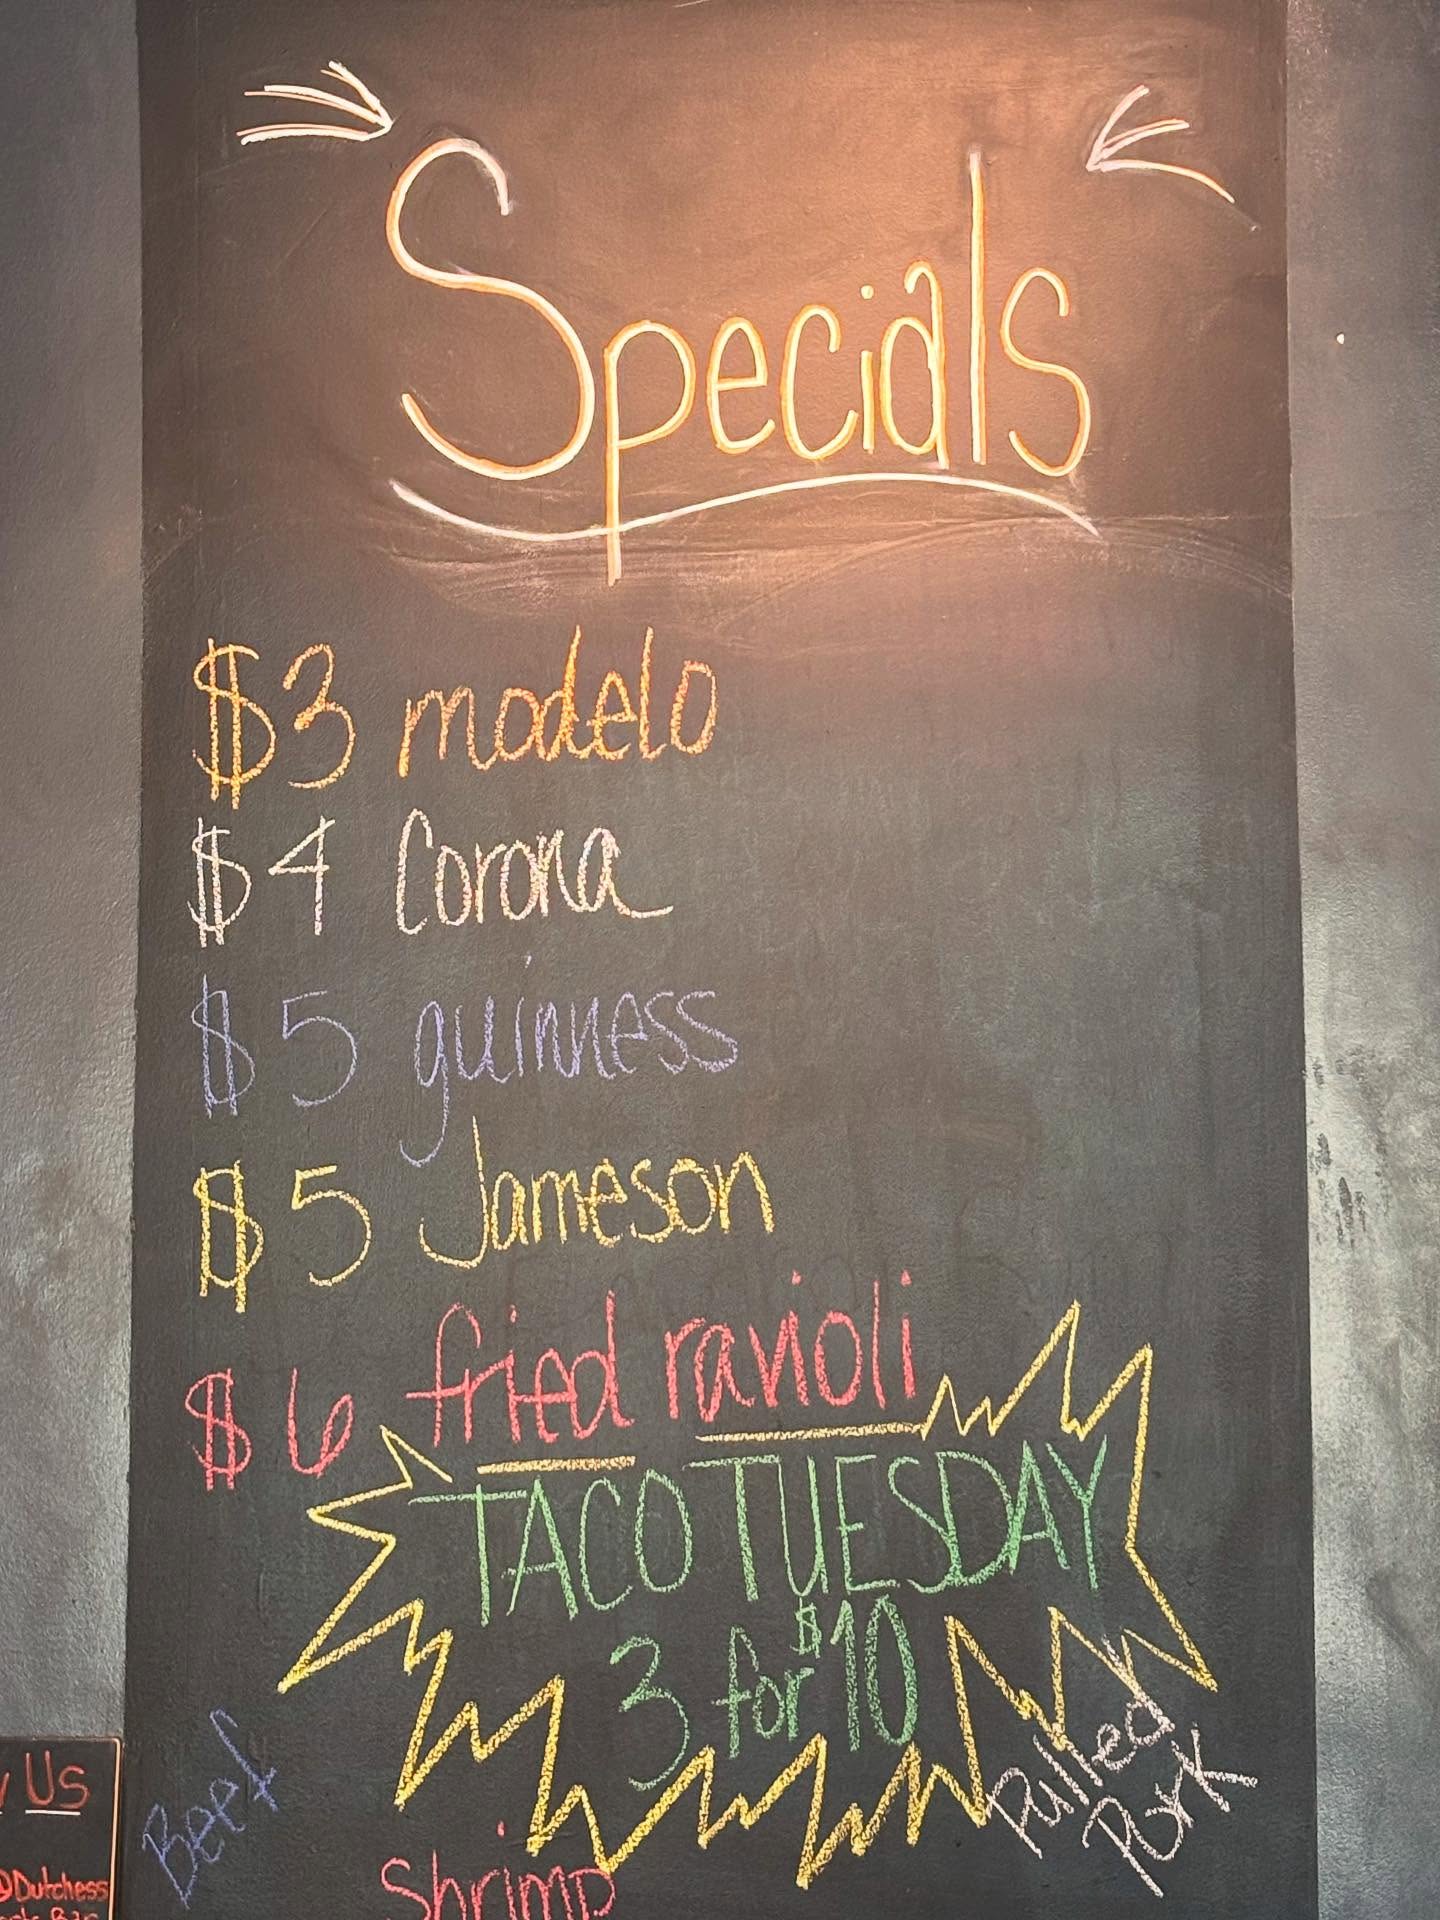 Specials
$3 modelo
$4 Corona
$5 guinness
$5 Jameson
$6 fried ravioli
TACO TUESDAY
3 for $10
Beef
Shrimp
Pulled
Pork
Us
@Dutchess
Bar